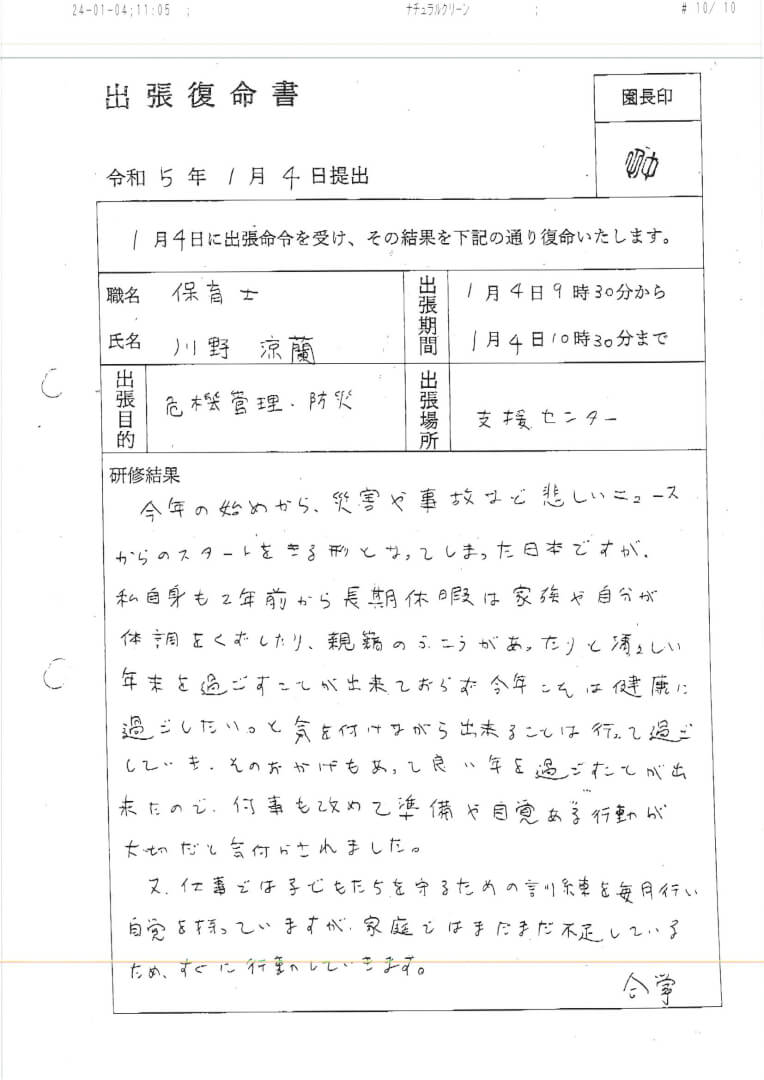 24-01-04;11:05 ; ナチュラルクリーン ; # 10/ 10
出張復命書
園長印
令和 5 年 1 月 4 日提出
1 月 4 日に出張命令を受け、その結果を下記の通り復命いたします。
職名 保育士
氏名 川野 涼蘭
出張期間
1 月 4 日 9 時 30 分から
1 月 4 日 10 時 30 分まで
出張目的
危機管理・防災
出張場所
支援センター
研修結果
今年の始めから、災害や事故など悲しいニュース
からのスタートをきる形となってしまった日本ですが、
私自身も2年前から長期休暇は家族や自分が
体調をくずしたり、親籍のふこうがあったりと清々しい
年末を過ごすことが出来ておらず今年こそは健康に
過ごしたい。と気を付けながら出来ることは行って過ご
していき、そのおかげもあって良い年を過ごすことが出
来たので、何事も改めて準備や自覚ある行動が
大切だと気付かされました。
又、仕事では子どもたちを守るための訓練を毎月行い
自覚を持っていますが、家庭ではまだまだ不足している
ため、すぐに行動していきます。